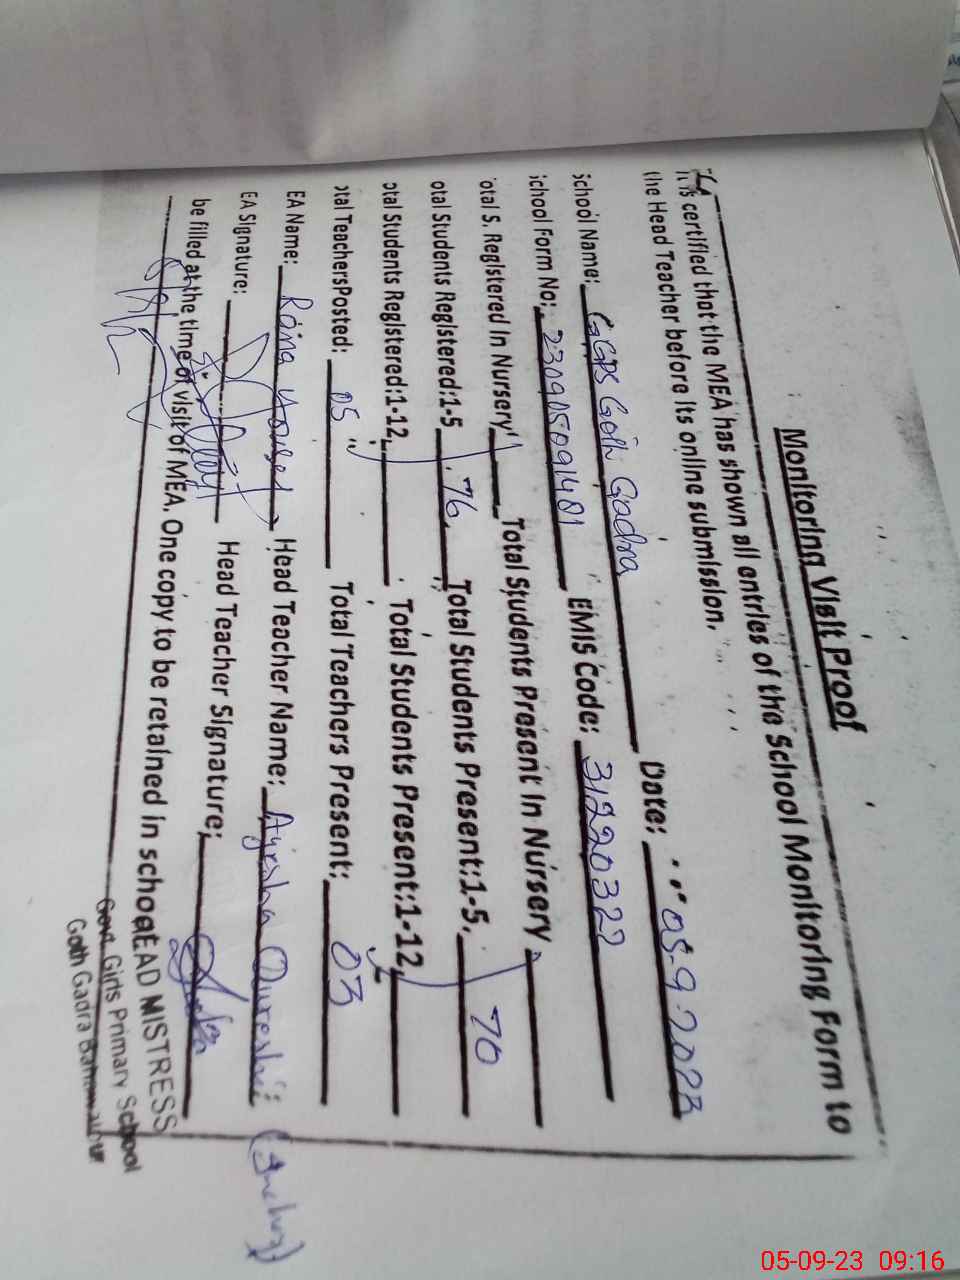 Monitoring Visit Proof
It is certified that the MEA has shown all entries of the School Monitoring Form to
the Head Teacher before its online submission.
Date: 05.9.2023
chool Name: GGPS Goth Gadra
chool Form No: 230905091481 EMIS Code: 31220322
otal S. Registered in Nursery Total Students Present in Nursery
otal Students Registered:1-5 76 Total Students Present:1-5. 70
otal Students Registered:1-12 Total Students Present:1-12
otal TeachersPosted: 05 Total Teachers Present: 03
EA Name: Rana Yousef Head Teacher Name: Ayesha Qureshi (Incharg)
EA Signature: Head Teacher Signature:
be filled at the time of visit of MEA. One copy to be retained in school
HEAD MISTRESS
Govt. Girls Primary School
Goth Gadra
05-09-23 09:16